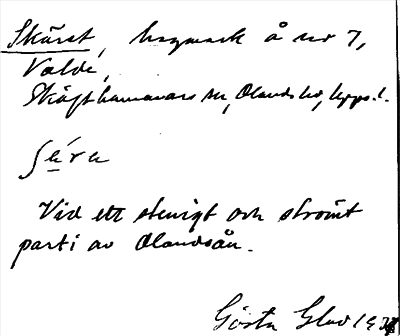 Skäret, hagmark å nr 7,
Valde,
Skäfthammars sn, Olands hd, Upps. l.
Vid ett stenigt och strömt
parti av Olandsån.
Gösta Glad 193